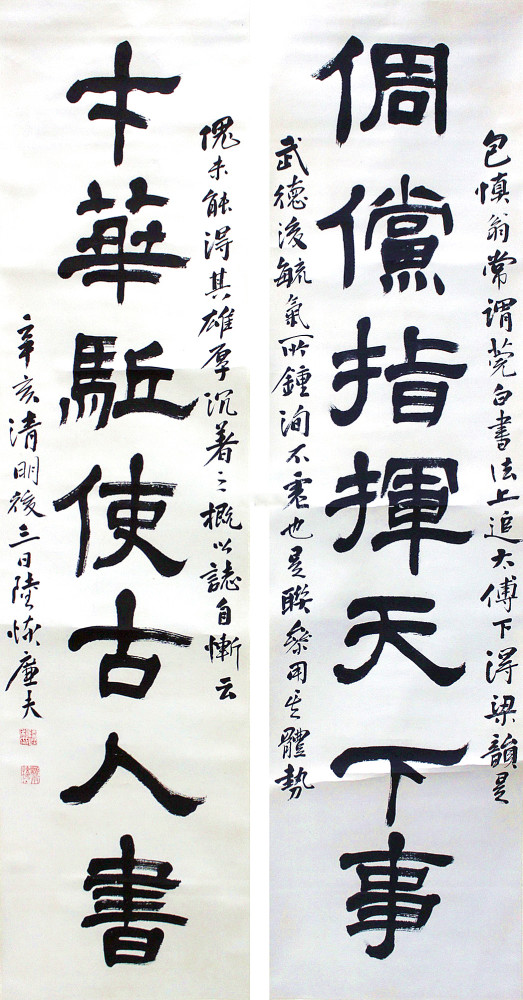 包慎翁常謂莞白書法上追大傅下淂梁韻是
倜儻指揮天下事
武德後毓氣所鍾洵不虛也是聯參用其體勢
愧未能淂其雄厚沉著之概以誌自慚云
才華駈使古人書
辛亥清明後三日陸恢廉夫